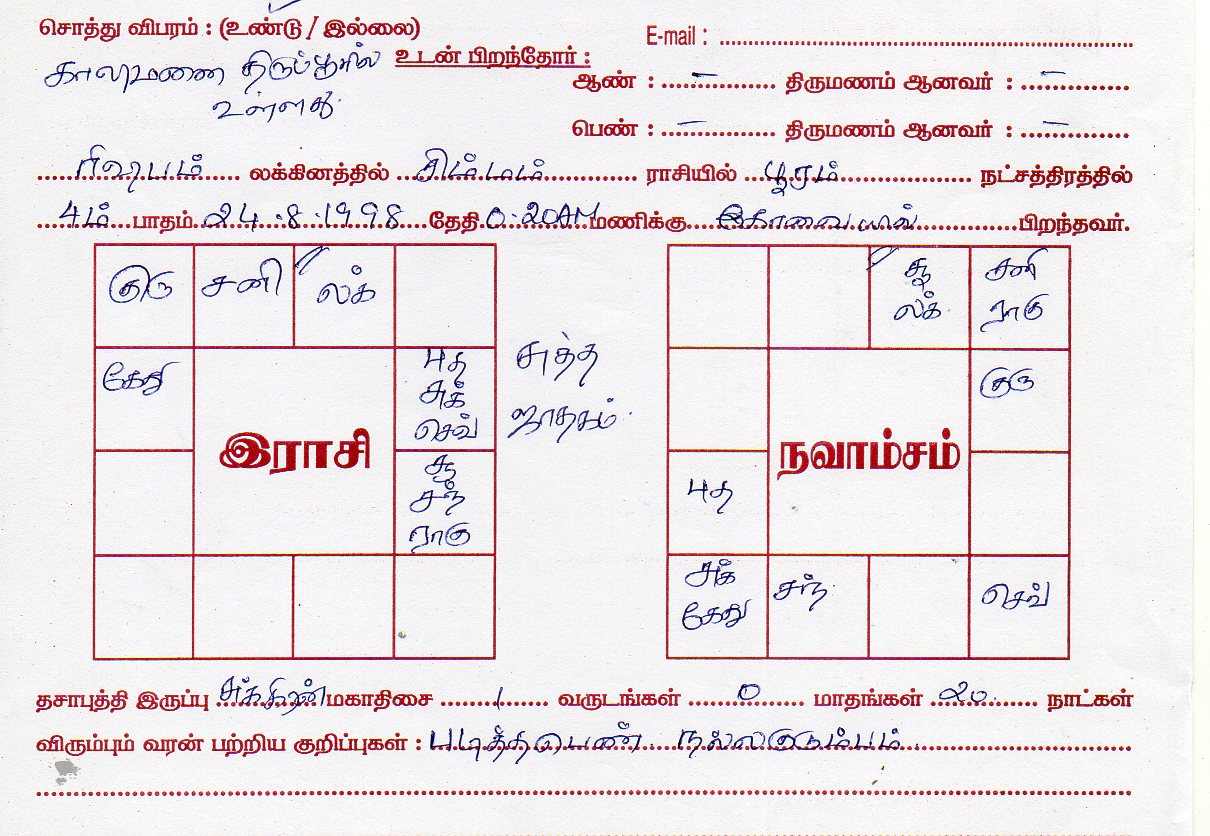 சொத்து விபரம் : (உண்டு / இல்லை)
E-mail : ..........
காலிமனை திருப்பூரில்
உள்ளது.
உடன் பிறந்தோர் :
ஆண் : ...–... திருமணம் ஆனவர் : ...–...
பெண் : ...–... திருமணம் ஆனவர் : ...–...
ரிஷபம் லக்கினத்தில் சிம்மம் ராசியில் பூரம் நட்சத்திரத்தில்
4ம் பாதம் 24.8.1998 தேதி 0.20AM மணிக்கு கோவையில் பிறந்தவர்.
குரு சனி லக்
கேது
புத
சுக்
செவ்
இராசி
சூ
சந்
ராகு
சுத்த
ஜாதகம்.
சூ
லக்
சனி
ராகு
குரு
நவாம்சம்
புத
சுக்
கேது
சந்
செவ்
தசாபுத்தி இருப்பு சுக்கிரன் மகாதிசை 1 வருடங்கள் 0 மாதங்கள் 20 நாட்கள்
விரும்பும் வரன் பற்றிய குறிப்புகள் : படித்தபெண் நல்லகுடும்பம்